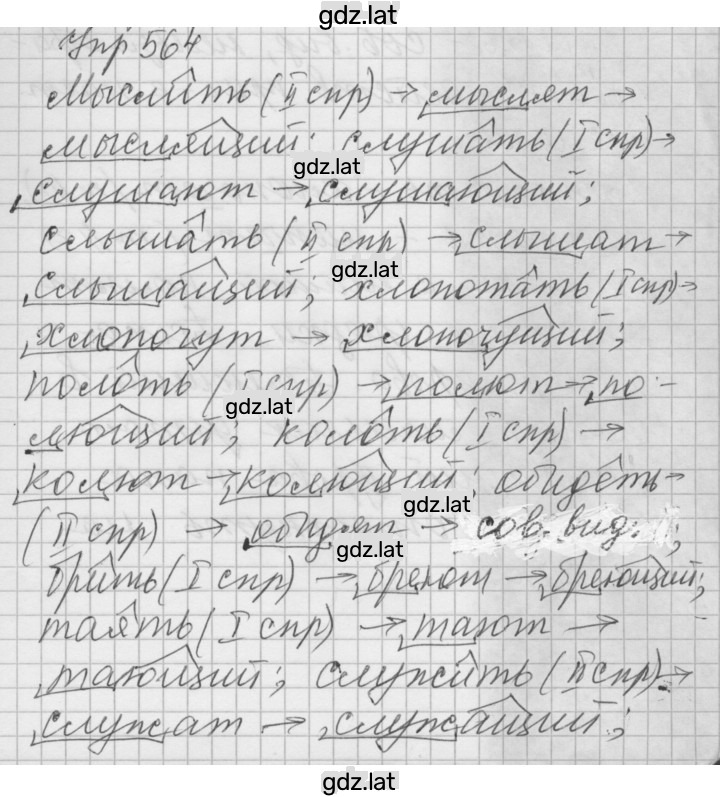 gdz.lat
Упр 564
Мыслить (II спр) → мыслят →
мыслящий; слушать (I спр) →
gdz.lat
слушают → слушающий;
слышать (II спр) → слышат →
gdz.lat
слышащий; хлопотать (I спр) →
хлопочут → хлопочущий;
полоть (I спр) → полют → по-
gdz.lat
лющий; колоть (I спр) →
колют → колющий; обидеть
gdz.lat
(II спр) → обидят → сов. вид;
gdz.lat
брить (I спр) → бреют → бреющий;
таять (I спр) → тают →
тающий; служить (II спр) →
служат → служащий;
gdz.lat